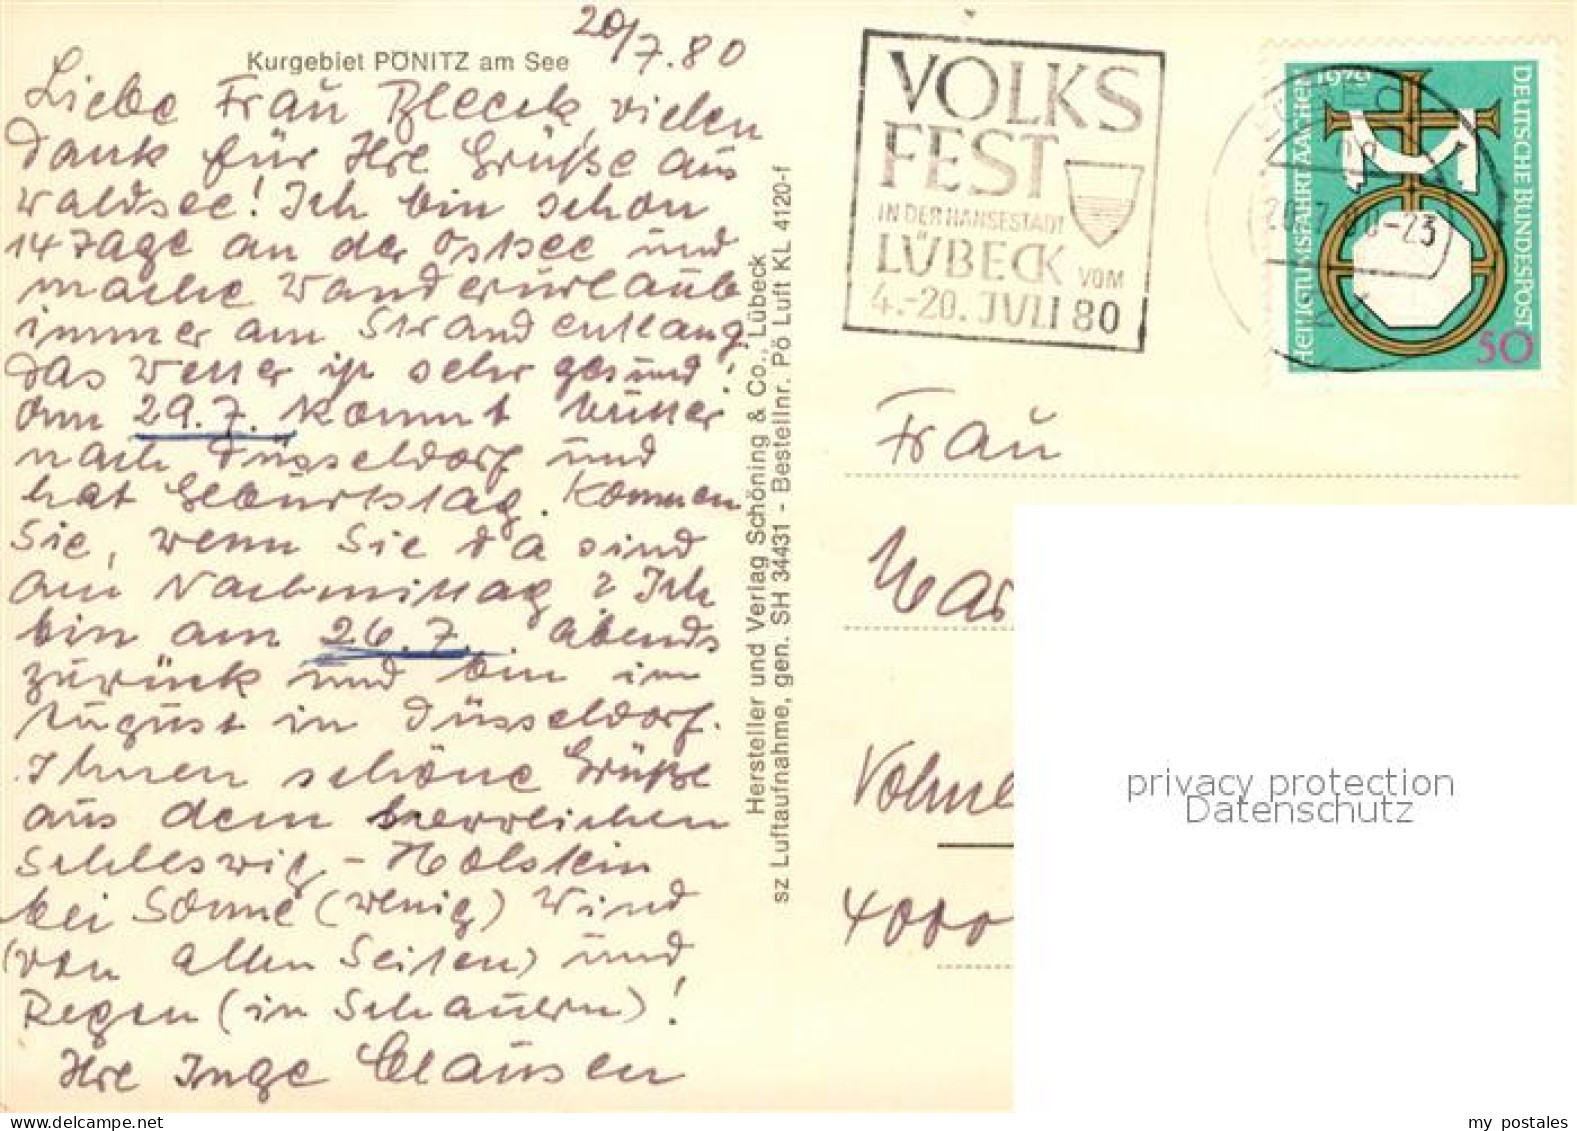 20/7.80
Kurgebiet PÖNITZ am See
Liebe Frau Bleeck, vielen
Dank für Ihre Grüße aus
Waldsee! Ich bin schon
14 Tage an der Ostsee und
mache Wanderurlaub
immer am Strand entlang.
Das Wetter ist sehr gesund!
Am 29.7. kommt
nach Düsseldorf und
hat Geburtstag. Kommen
Sie, wenn Sie da sind
am Nachmittag? Ich
bin am 26.7. abends
zurück und bin im
August in Düsseldorf.
Ihnen schöne Grüße
aus dem herrlichen
Schleswig-Holstein
bei Sonne (wenig) Wind
(von allen Seiten) und
Regen (in Schauern)!
Ihre Inge Clausen
Hersteller und Verlag Schöning & Co., Lübeck
sz Luftaufnahme, gen. SH 34431 - Bestellnr. Pö Luft KL 4120-f
VOLKS
FEST
IN DER HANSESTADT
LÜBECK VOM
4.-20. JULI 80
HEILIGTUMSFAHRT AACHEN 1979
DEUTSCHE BUNDESPOST
50
-23
Frau
Volme
4000
privacy protection
Datenschutz
www.ansichtskartenversand.com
my postales